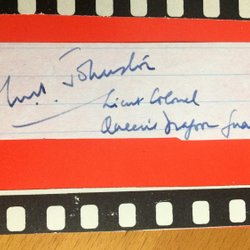 Johnston
Lieut Colonel
Queen's Dragoon Gua